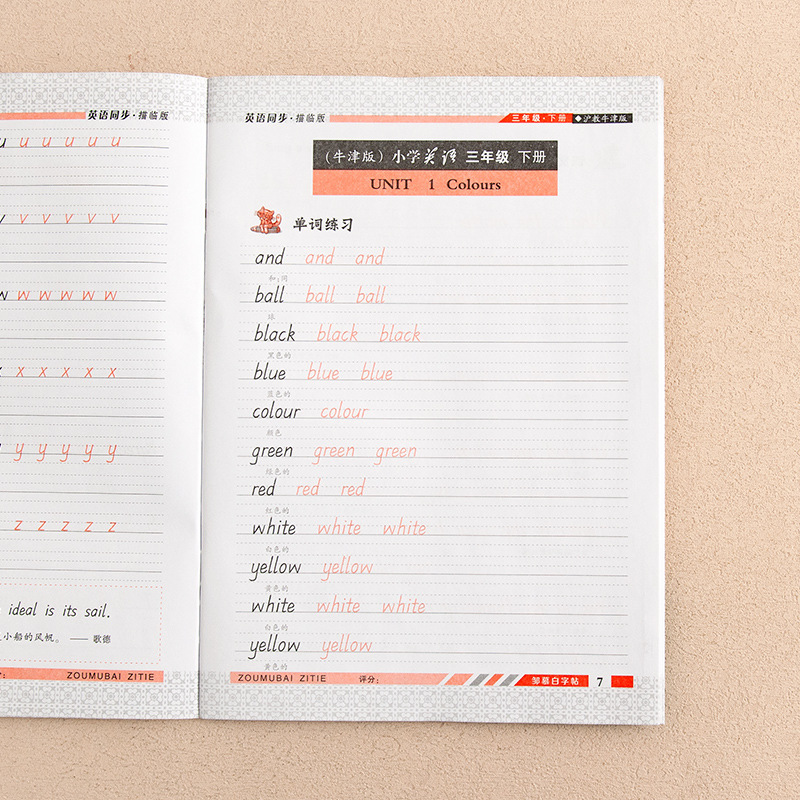 英语同步·描临版
u u u u u u
v v v v v
w w w w w w
x x x x x x
y y y y y
z z z z z
ideal is its sail.
小船的风帆。 —— 歌德
ZOUMUBAI ZITIE
英语同步·描临版
三年级·下册 ◆沪教牛津版
(牛津版) 小学英语 三年级 下册
UNIT 1 Colours
单词练习
and and and
和;同
ball ball ball
球
black black black
黑色的
blue blue blue
蓝色的
colour colour
颜色
green green green
绿色的
red red red
红色的
white white white
白色的
yellow yellow
黄色的
white white white
白色的
yellow yellow
黄色的
ZOUMUBAI ZITIE 评分: 邹慕白字帖 7